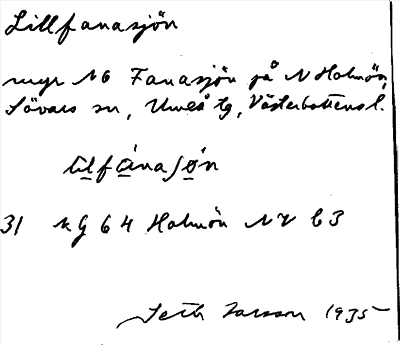 Lillfanasjön
myr NO Fanasjön på N Holmön,
Sävars sn, Umeå tg, Västerbottens l.
lilfánasjø̀n
31 kG 64 Holmön NV C3
Seth Larsson 1935